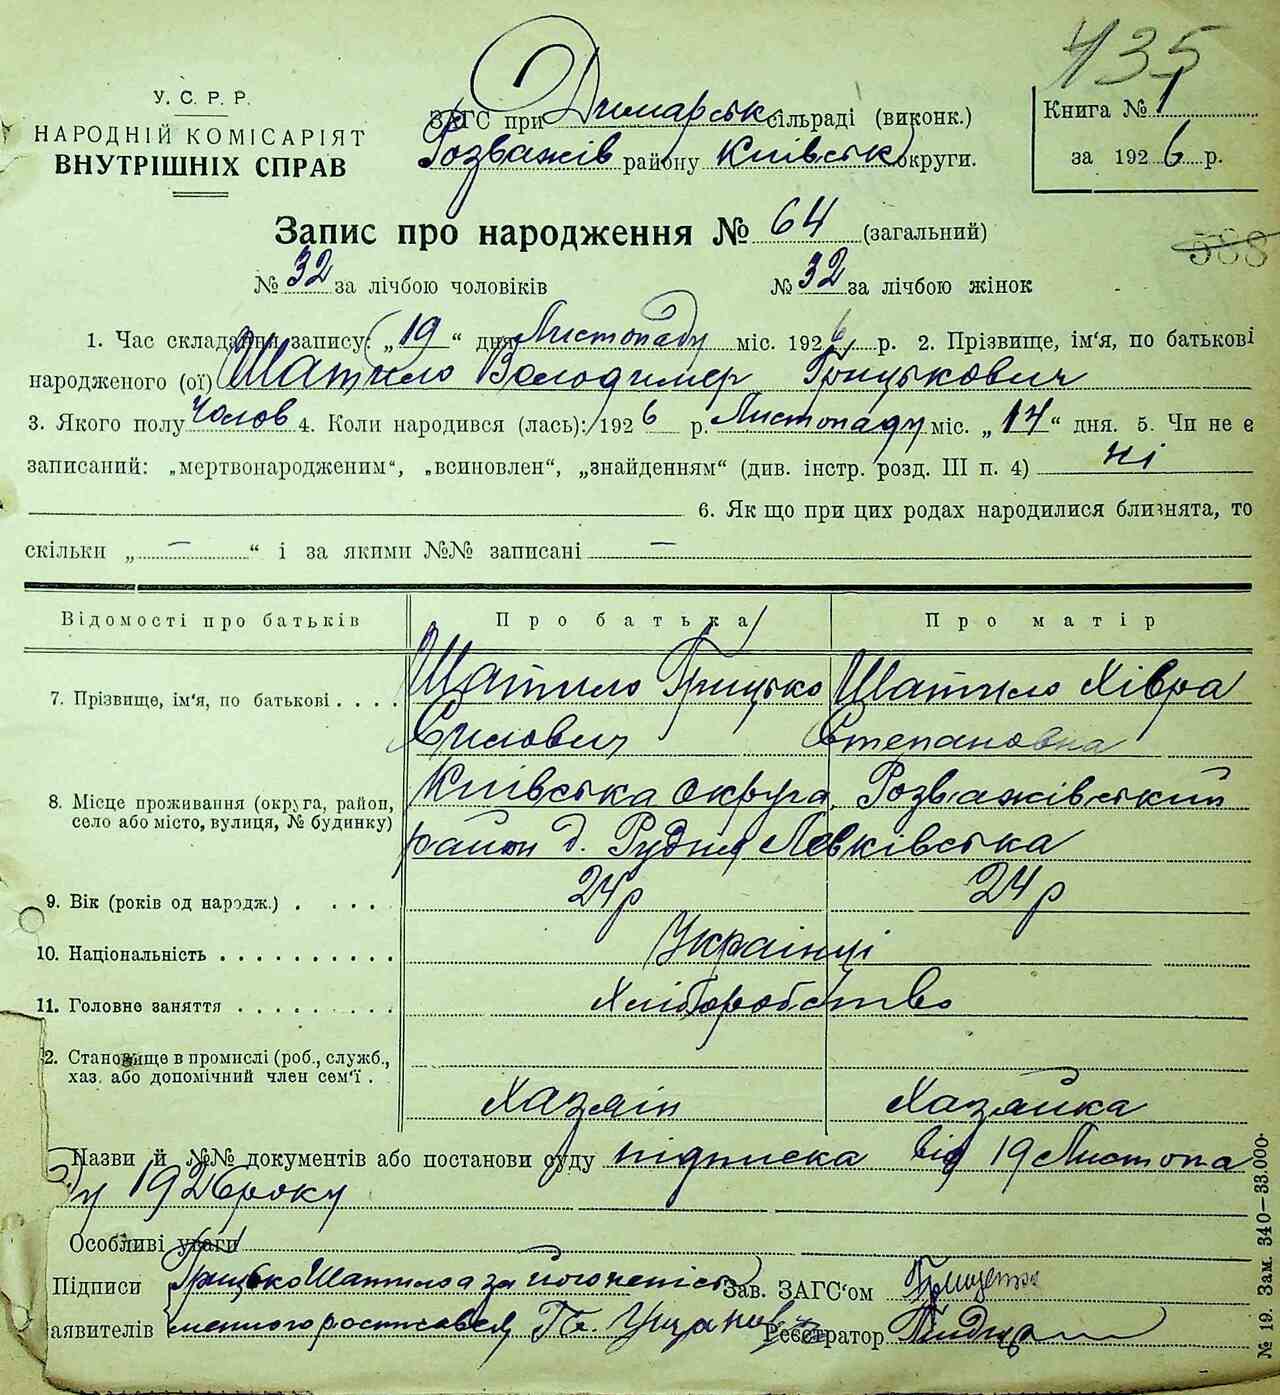 435
У. С. Р. Р.
НАРОДНІЙ КОМІСАРІЯТ
ВНУТРІШНІХ СПРАВ
ЗАГС при Димарськ сільраді (виконк.)
Розважів району Київськ округи.
Книга № 1
за 1926 р.
Запис про народження № 64 (загальний)
588
№ 32 за лічбою чоловіків № 32 за лічбою жінок
1. Час складання запису: „19“ дня Листопаду міс. 1926 р. 2. Прізвище, ім'я, по батькові
народженого (ої) Шатило Володимер Грицькович
3. Якого полу Чолов 4. Коли народився (лась): 1926 р. Листопаду міс. „14“ дня. 5. Чи не є
записаний: „мертвонародженим“, „всиновлен“, „знайденням“ (див. інстр. розд. III п. 4) ні
6. Як що при цих родах народилися близнята, то
скільки „ — “ і за якими №№ записані —
Відомості про батьків Про батька Про матір
7. Прізвище, ім'я, по батькові . . . . Шатило Грицько Шатило Хівра
Силович Степановна
8. Місце проживання (округа, район, село або місто, вулиця, № будинку) Київська округа, Розважівський
район д. Рудня Левківська
9. Вік (років од народж.) . . . . . 24 р 24 р
10. Національність . . . . . . . . . . Українці
11. Головне заняття . . . . . . . . . Хліборобство
2. Становище в промислі (роб., служб.,
хаз. або допомічний член сем'ї . Хазяїн Хазяйка
Назви й №№ документів або постанови суду підписка від 19 Листопа
ду 1926 року
Особливі уваги
Підписи Грицько Шатило а за його неписьменного Зав. ЗАГС'ом Грищенко
аявителів розписався Реєстратор
№ 19. Зам. 340—33.000.